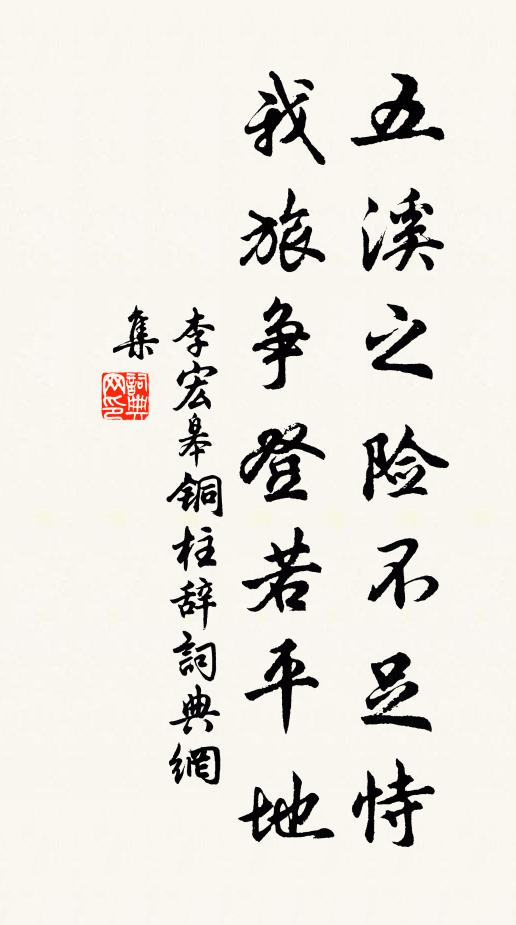 五溪之险不足恃
我旅争登若平地
李宏皋銅柱辞詞典網
集
詞典
网印